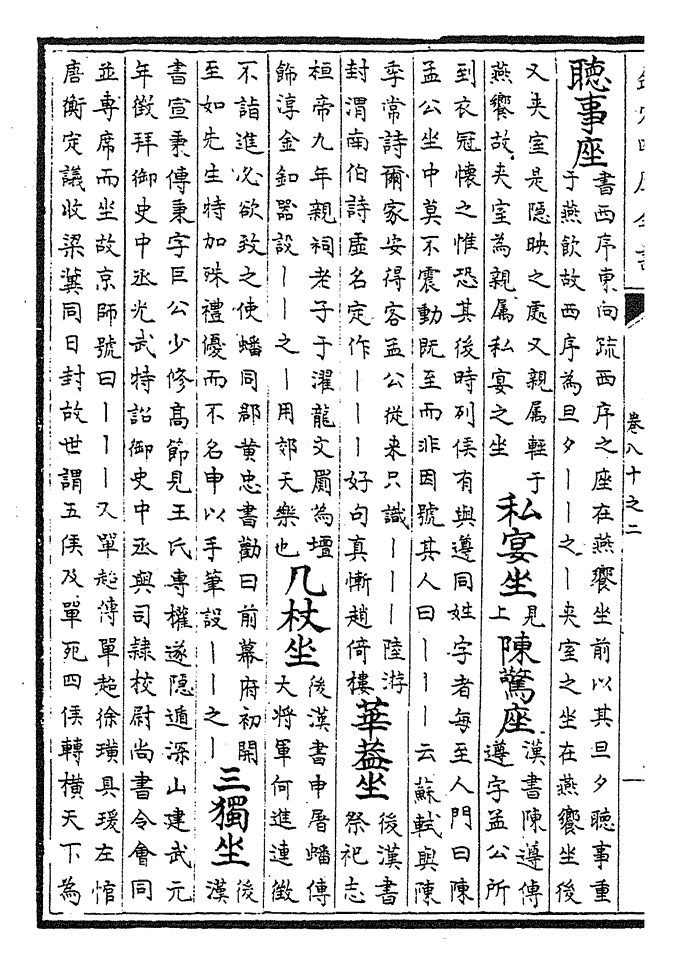 卷八十之二
聽事座
書西序東向疏西序之座在燕饗坐前以其旦夕聽事重
于燕飲故西序為旦夕丨丨之丨夾室之坐在燕饗坐後
又夾室是隱映之處又親属輕于
燕饗故夾室為親属私宴之坐
私宴坐
見
上
陳驚座
漢書陳遵傳
遵字孟公所
到衣冠懷之惟恐其後時列侯有與遵同姓字者每至人門曰陳
孟公坐中莫不震動既至而非因號其人曰丨丨丨云蘇軾與陳
季常詩爾家安得客孟公從来只識丨丨丨陸游
封渭南伯詩虛名定作丨丨丨好句真慚趙倚樓
華葢坐
後漢書
祭祀志
桓帝九年親祠老子于濯龍文罽為壇
飾淳金釦器設丨丨之丨用郊天樂也
几杖坐
後漢書申屠蟠傳
大將軍何進連徵
不詣進必欲致之使蟠同郡黄忠書勸曰前幕府初開
至如先生特加殊禮優而不名申以手筆設丨丨之丨
三獨坐
後
漢
書宣秉傳秉字巨公少修髙節見王氏專權遂隱遁深山建武元
年徵拜御史中丞光武特詔御史中丞與司隷校尉尚書令會同
並專席而坐故京師號曰丨丨丨又單超傳單超徐璜具瑗左悺
唐衡定議收梁冀同日封故世謂五侯及單死四侯轉橫天下為